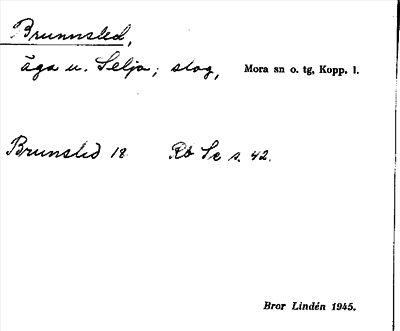 Brunnsled,
äga u. Selja; slog, Mora sn o. tg, Kopp. l.
Brunsled 18 Rb Se s. 42.
Bror Lindén 1945.